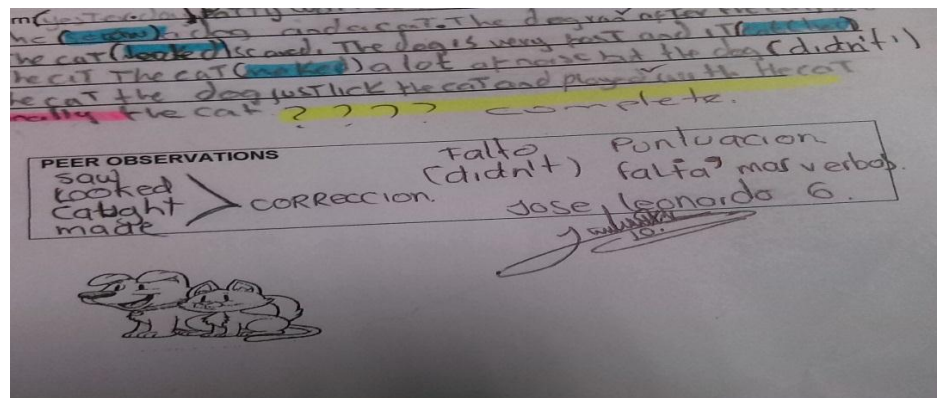 he dog and a cat. The dog ran after
he cat (looked) scared. The dog is very fast and iT
he caT The caT (maked) a lot of noise but the dog (didnit')
he caT the dog jusT lick the caT and played with the caT
nally the cat ? ? ? ? complete.
PEER OBSERVATIONS
saw
Looked
Caught
made
CORRECCION.
Falto Puntuacion
(didn't) falta, mas verbos.
Jose, Leonardo G.